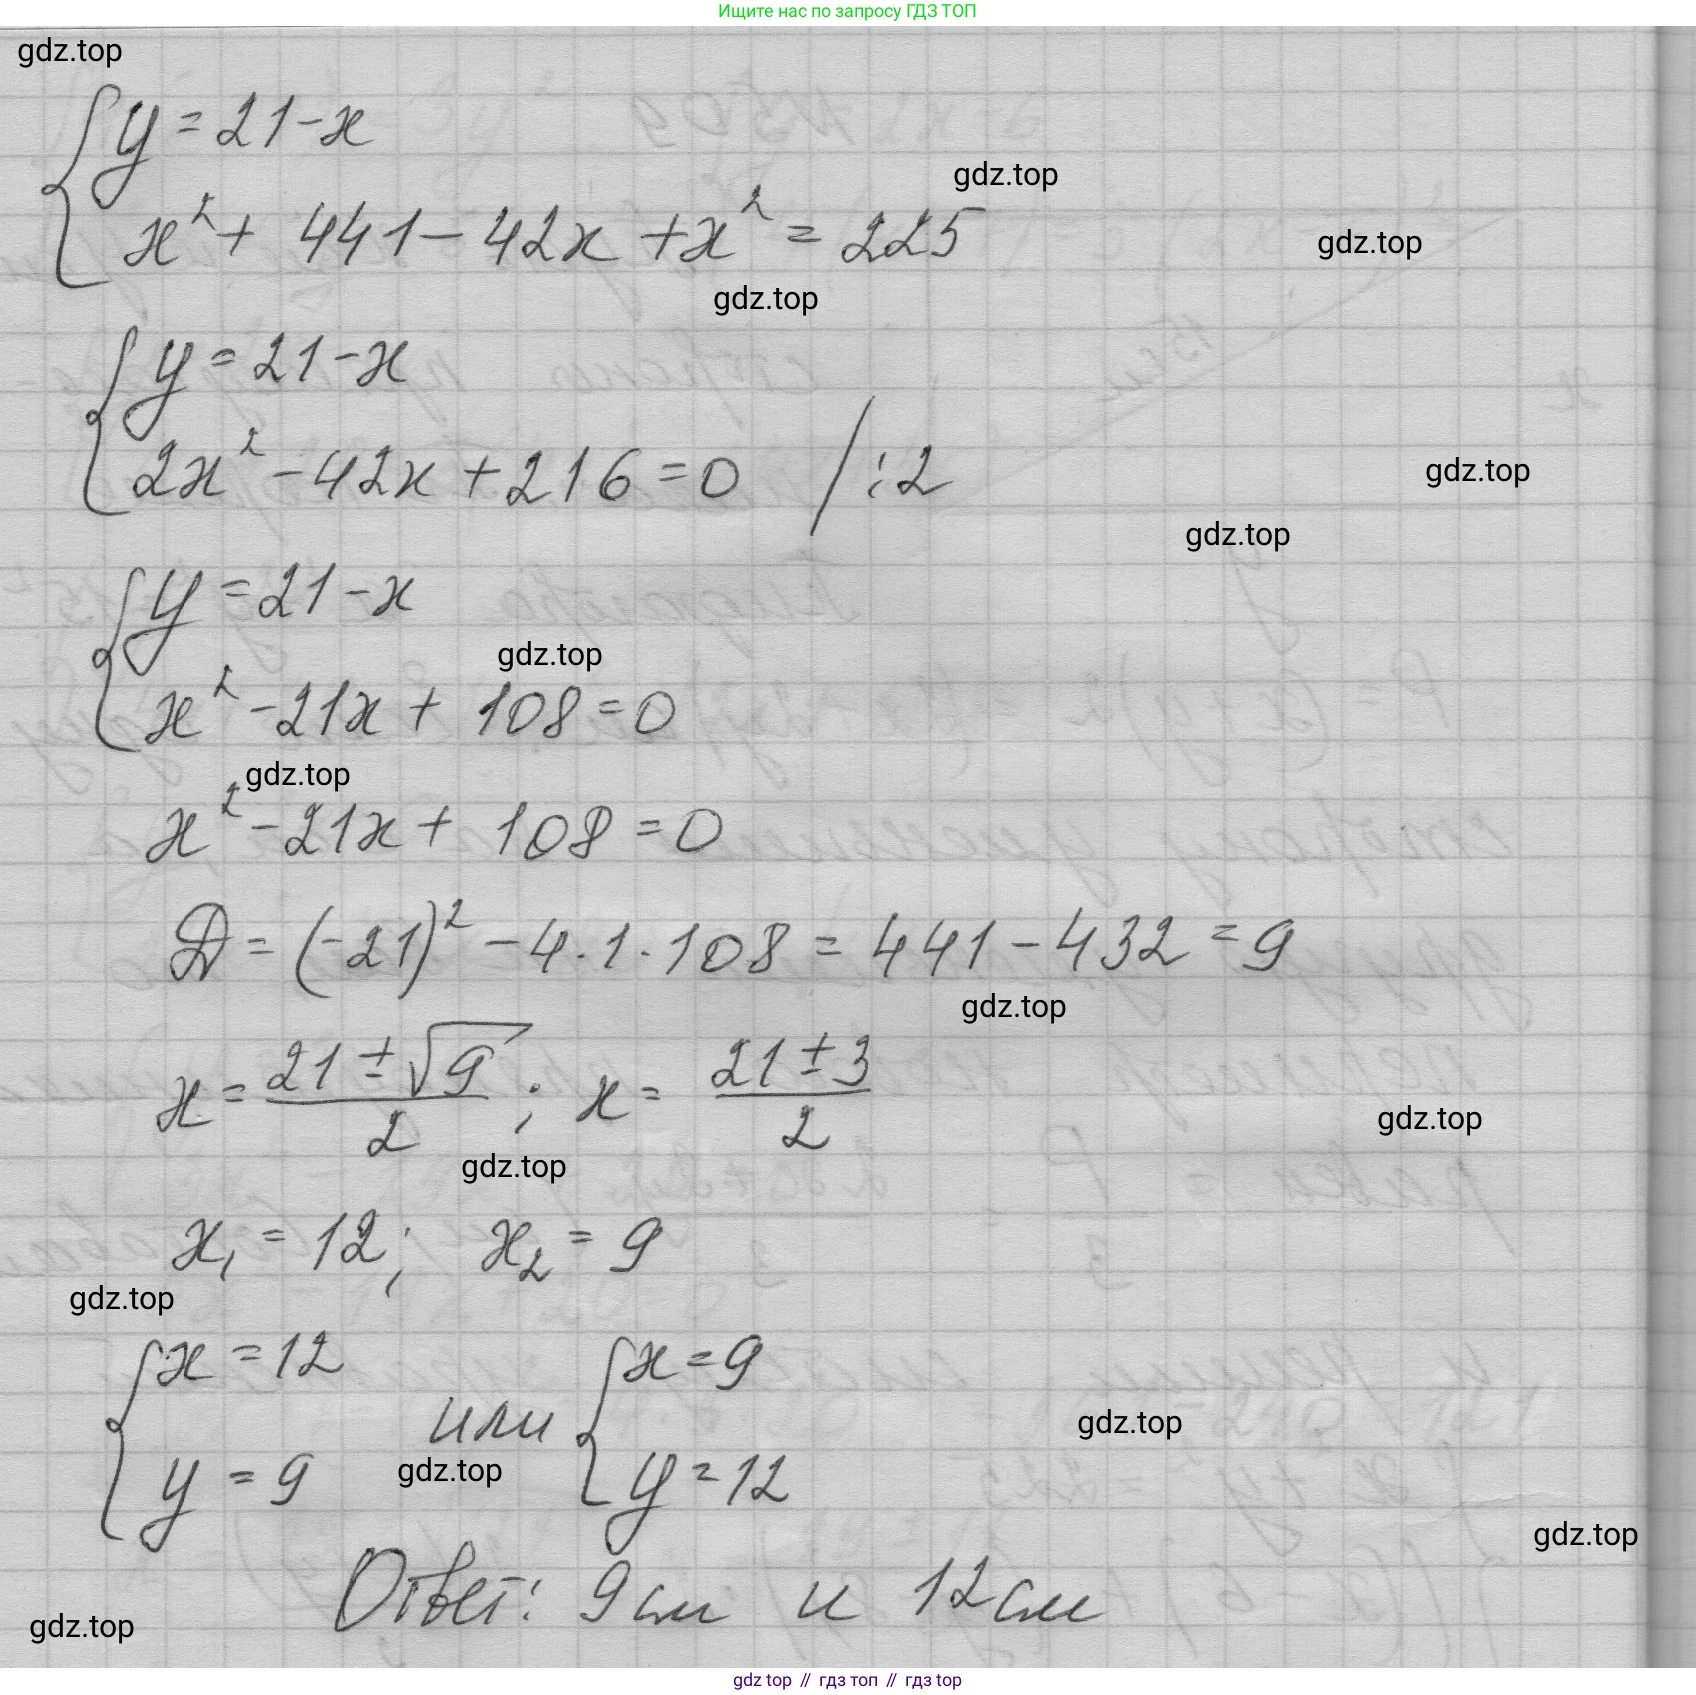 Ищите нас по запросу ГДЗ ТОП
gdz.top
y = 21 - x
gdz.top
x² + 441 - 42x + x² = 225
gdz.top
gdz.top
y = 21 - x
2x² - 42x + 216 = 0 / :2
gdz.top
gdz.top
y = 21 - x
gdz.top
x² - 21x + 108 = 0
gdz.top
x² - 21x + 108 = 0
D = (-21)² - 4 · 1 · 108 = 441 - 432 = 9
gdz.top
x = (21 ± √9)/2 ; x = (21 ± 3)/2
gdz.top
gdz.top
x₁ = 12; x₂ = 9
gdz.top
x = 12 или x = 9
y = 9 y = 12
gdz.top
gdz.top
gdz.top
Ответ: 9 см и 12 см
gdz.top
gdz top // гдз топ // гдз top